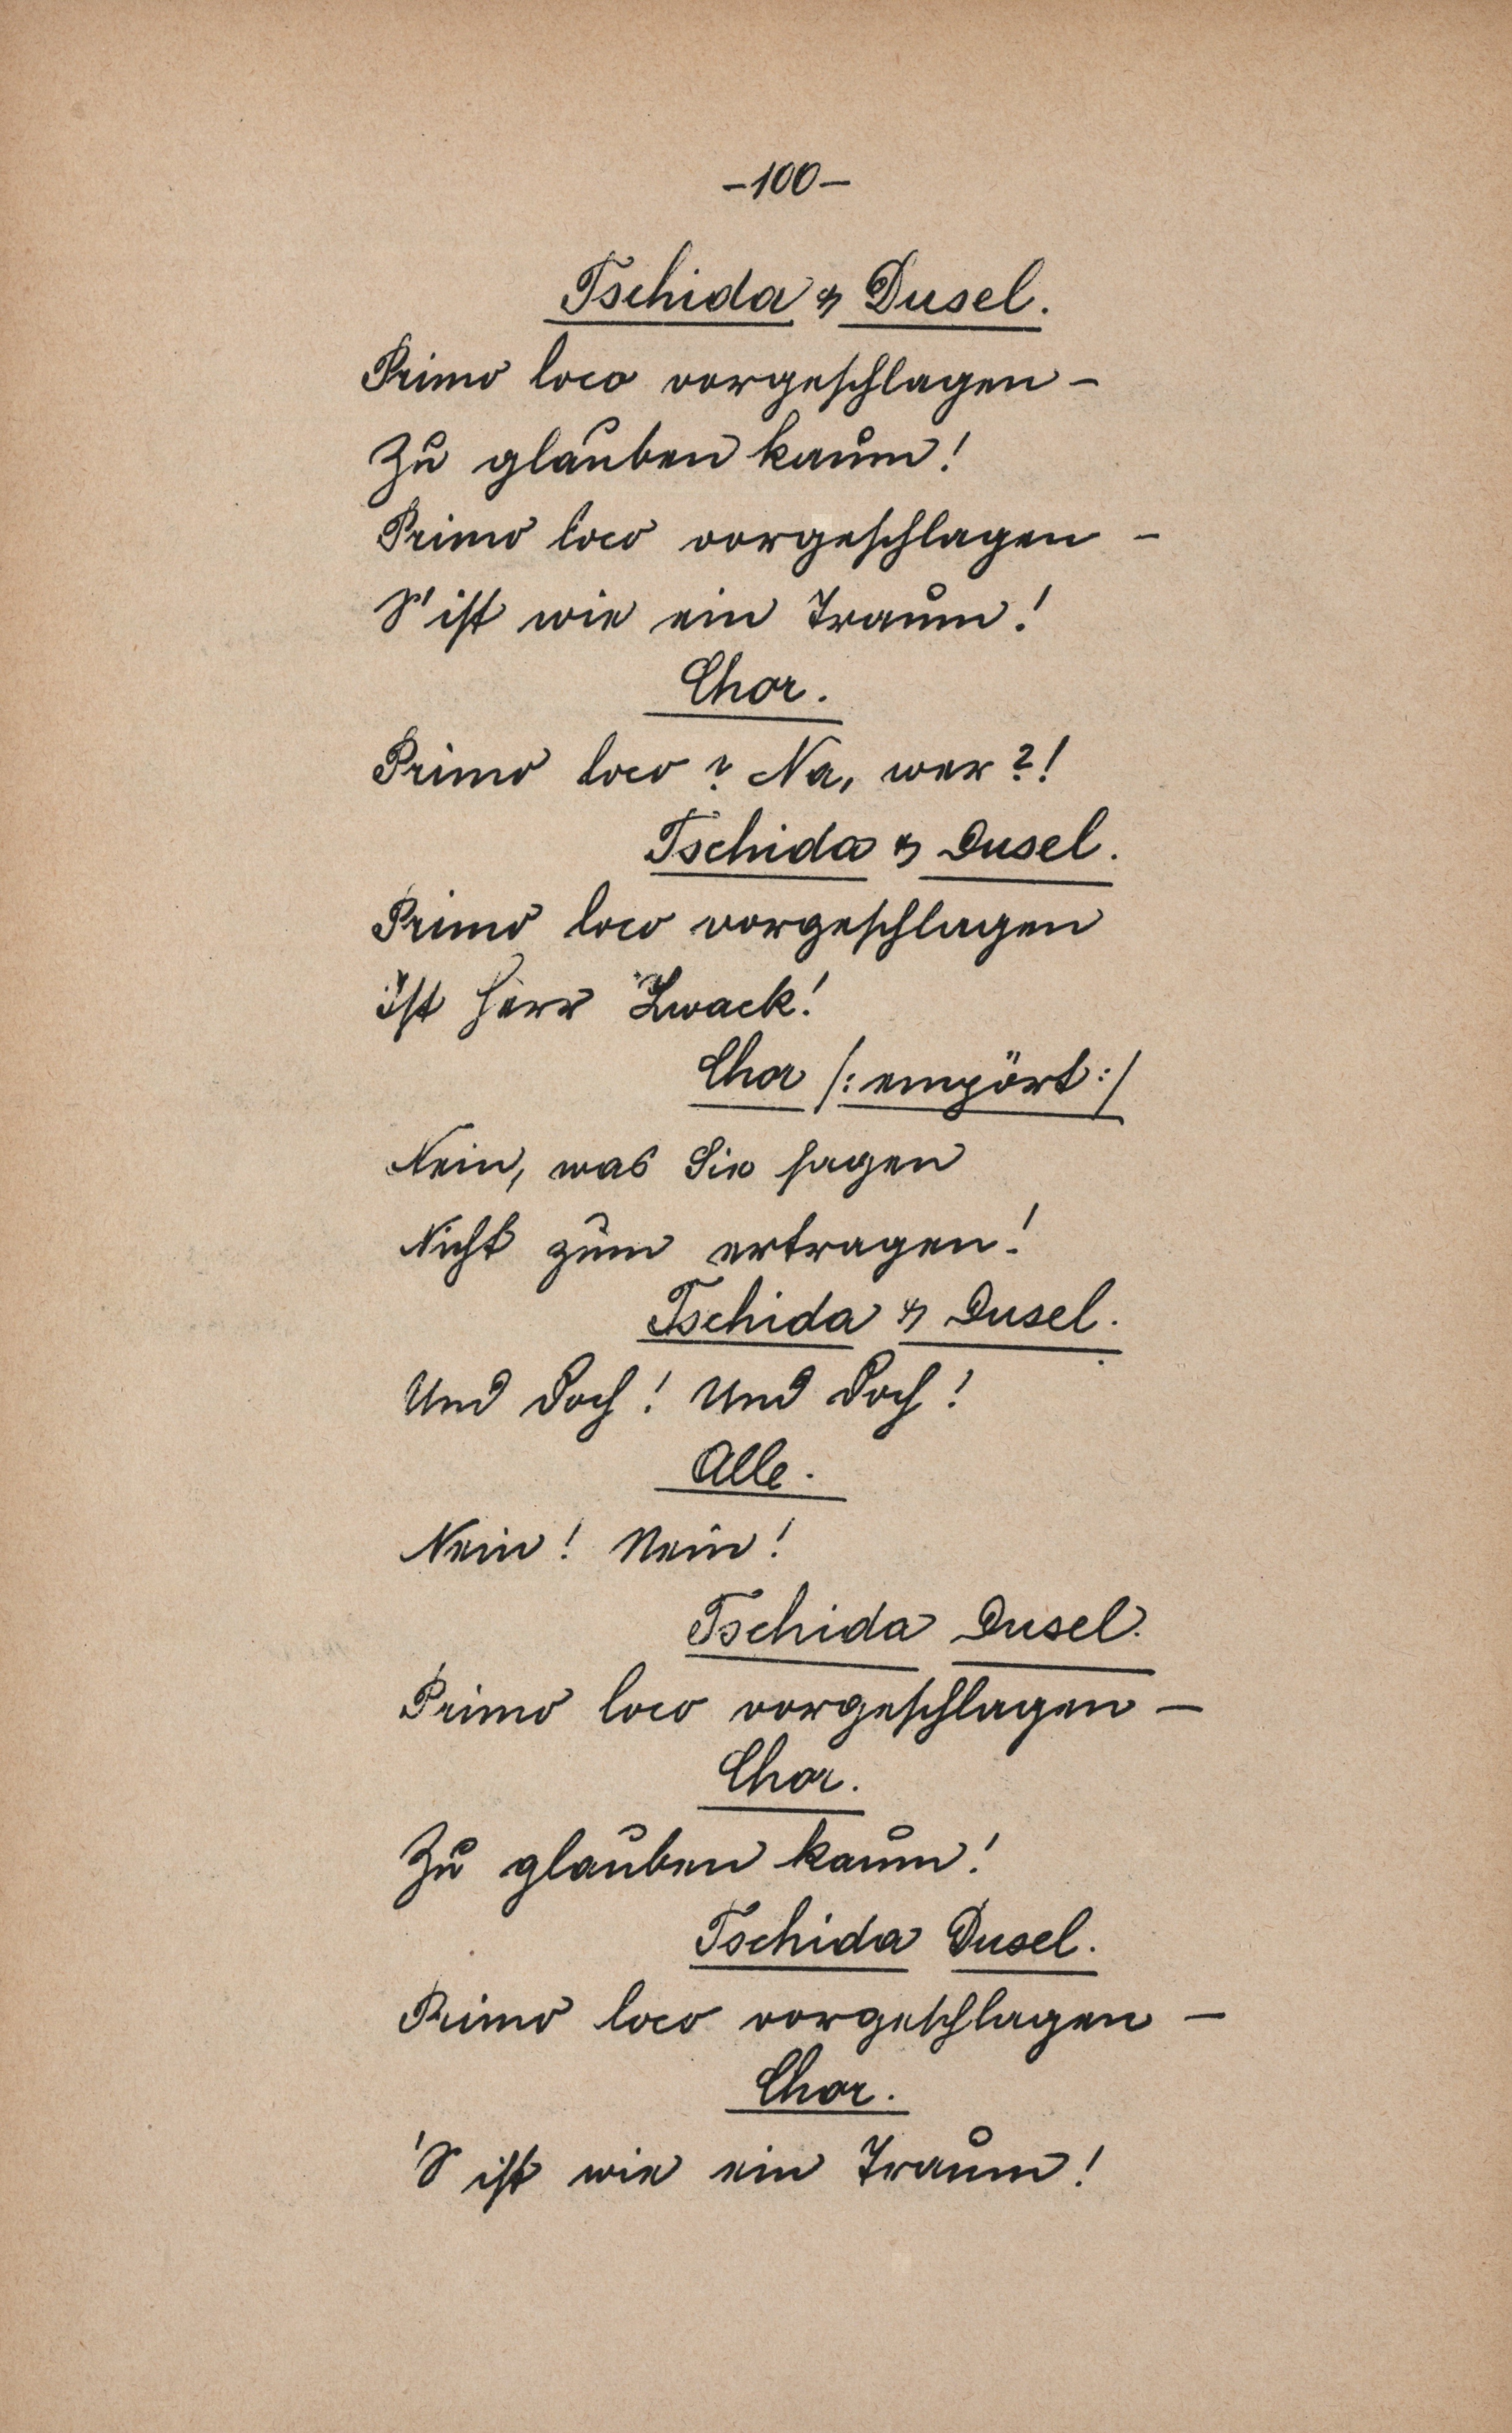 -100-
Tschida & Dusel.
Primo loco vorgeschlagen -
Zu glauben kaum!
Primo loco vorgeschlagen -
S' ist wie ein Traum!
Chor.
Primo loco? Na, wer?!
Tschida & Dusel.
Primo loco vorgeschlagen
ist Herr Zwack!
Chor /: empört :/
Nein, was Sie sagen
Nicht zum ertragen!
Tschida & Dusel.
Und doch! Und doch!
Alle.
Nein! Nein!
Tschida Dusel.
Primo loco vorgeschlagen -
Chor.
Zu glauben kaum!
Tschida Dusel.
Primo loco vorgeschlagen -
Chor.
'S ist wie ein Traum!